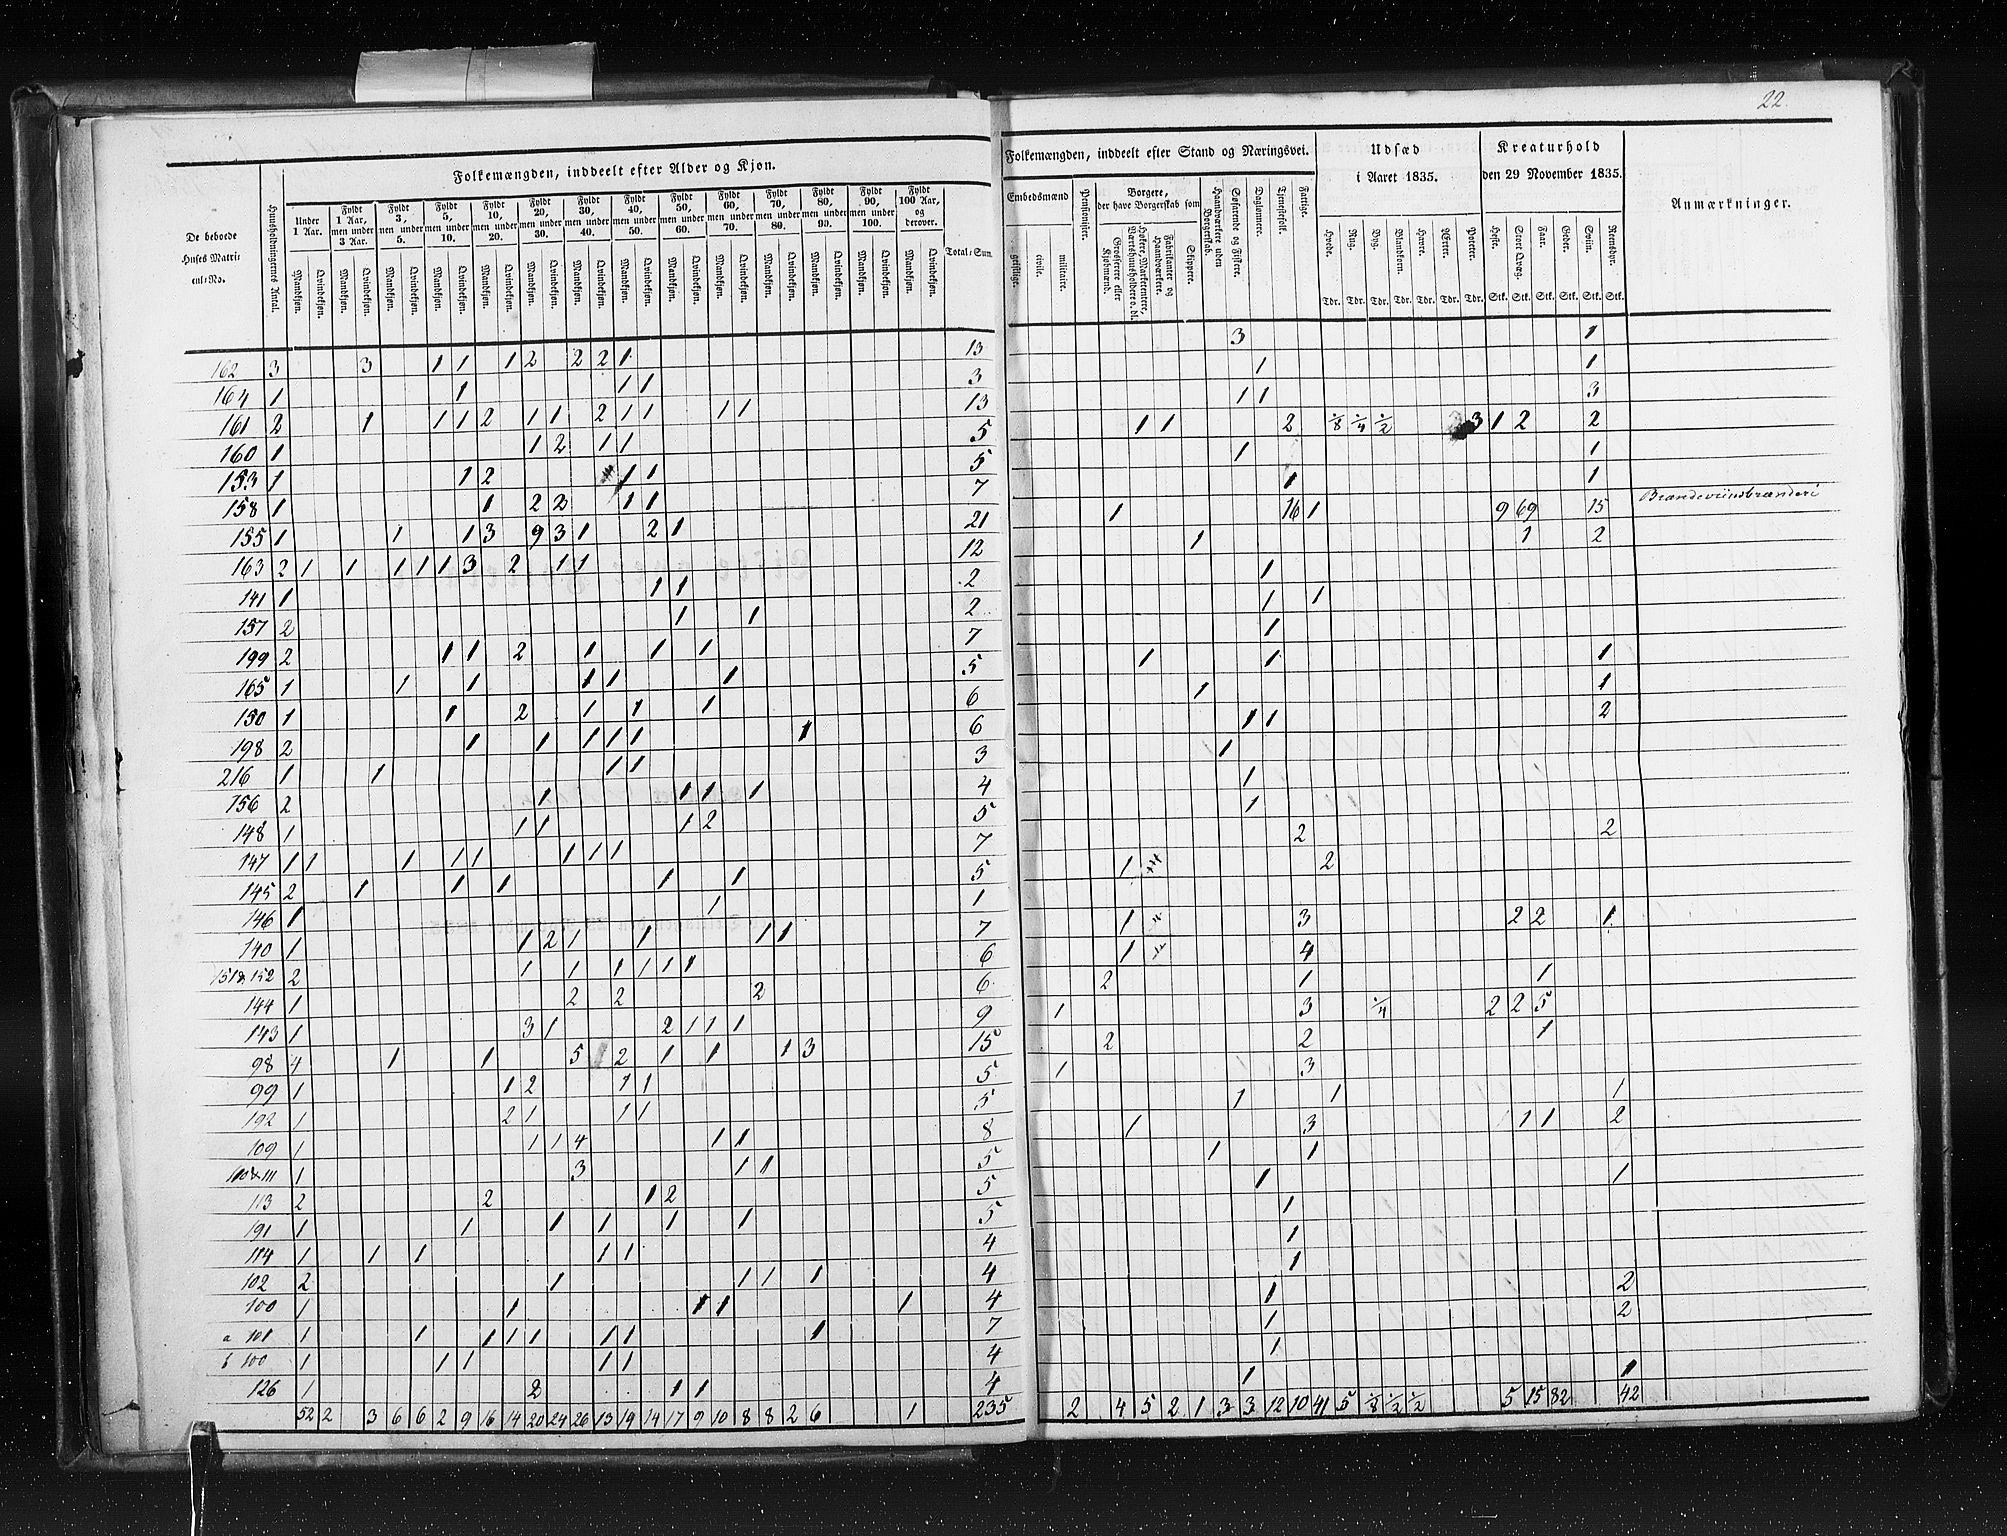 22
Folkemængden, inddeelt efter Alder og Kjøn.
De beboede Huses Matricul-No.
Huusholdningernes Antal.
Under 1 Aar.
Fyldt 1 Aar, men under 3 Aar.
Fyldt 3, men under 5.
Fyldt 5, men under 10.
Fyldt 10, men under 20.
Fyldt 20, men under 30.
Fyldt 30, men under 40.
Fyldt 40, men under 50.
Fyldt 50, men under 60.
Fyldt 60, men under 70.
Fyldt 70, men under 80.
Fyldt 80, men under 90.
Fyldt 90, men under 100.
Fyldt 100 Aar, og derover.
Mandkjøn. Qvindekjøn.
Total-Sum.
162 3 3 1 1 1 2 2 2 1 13
164 1 1 1 1 3
161 2 1 1 1 2 1 1 2 1 1 1 1 13
160 1 1 2 1 1 5
153 1 1 2 1 1 5
158 1 1 2 2 1 1 7
155 1 1 1 3 9 3 1 2 1 21
163 2 1 1 1 1 1 3 2 1 1 12
141 1 1 1 2
157 2 1 1 2
199 2 1 1 2 1 1 1 7
165 1 1 1 1 1 1 5
150 1 1 2 1 1 1 6
198 2 1 1 1 1 1 1 6
216 1 1 1 1 3
156 2 1 1 1 1 4
148 1 1 1 1 2 5
147 1 1 1 1 1 1 1 1 7
145 2 1 1 1 1 1 5
146 1 1 1
140 1 1 2 1 1 1 1 7
151 & 152 2 1 1 1 1 1 1 6
144 1 2 2 2 6
143 1 3 1 2 1 1 1 9
98 4 1 1 5 2 1 1 1 3 15
99 1 1 2 1 1 5
192 1 2 1 1 1 5
109 1 1 1 4 1 1 8
110 & 111 1 3 1 1 5
113 2 2 1 2 5
191 1 1 1 1 1 1 5
114 1 1 1 1 1 4
102 2 1 1 1 1 4
100 1 1 1 1 1 4
a 101 1 1 1 1 1 1 1 1 7
b 100 1 1 1 1 1 4
126 1 2 1 1 4
52 2 3 6 6 2 9 16 14 20 24 26 13 19 14 17 9 10 8 8 2 6 1 235
Folkemængden, inddeelt efter Stand og Næringsvei.
Embedsmænd
geistlige.
civile.
militaire.
Pensionister.
Borgere, der have Borgerskab som
Grosserere eller Kjøbmænd.
Høkere, Marketentere, Værtshuusholdere o. dl.
Fabrikanter og Haandværkere.
Skippere.
Haandværkere uden Borgerskab.
Søfarende og Fiskere.
Daglønnere.
Tjenestefolk.
Fattige.
Udsæd i Aaret 1835.
Hvede. Rug. Byg. Blandkorn. Havre. Ærter. Poteter.
Tdr. Tdr. Tdr. Tdr. Tdr. Tdr. Tdr.
Kreaturhold den 29 November 1835.
Heste. Stort Qvæg. Faar. Geder. Sviin. Reensdyr.
Stk. Stk. Stk. Stk. Stk. Stk.
Anmærkninger.
3 1
1 1
1 1 3
1 1 2 1/8 1/4 1/2 3 1 2 2
1 1
1 1
1 16 1 9 69 15 Brændeviinsbrænderi
1 1 2
1
1 1
1
1 1 1
1 1
1 1 2
1
1
1
2 2
1 2
1 3 2 2 1
1 4
2 1 1
1 3 1/4 2 2 5
2 2 1
1 3
1 1 1
1 3 1 1 2
1 1
1 1
1
1
1
1 2
1 2
1
1 1
2 4 5 2 1 3 3 12 10 41 5 1/8 1/2 1/2 5 15 82 42